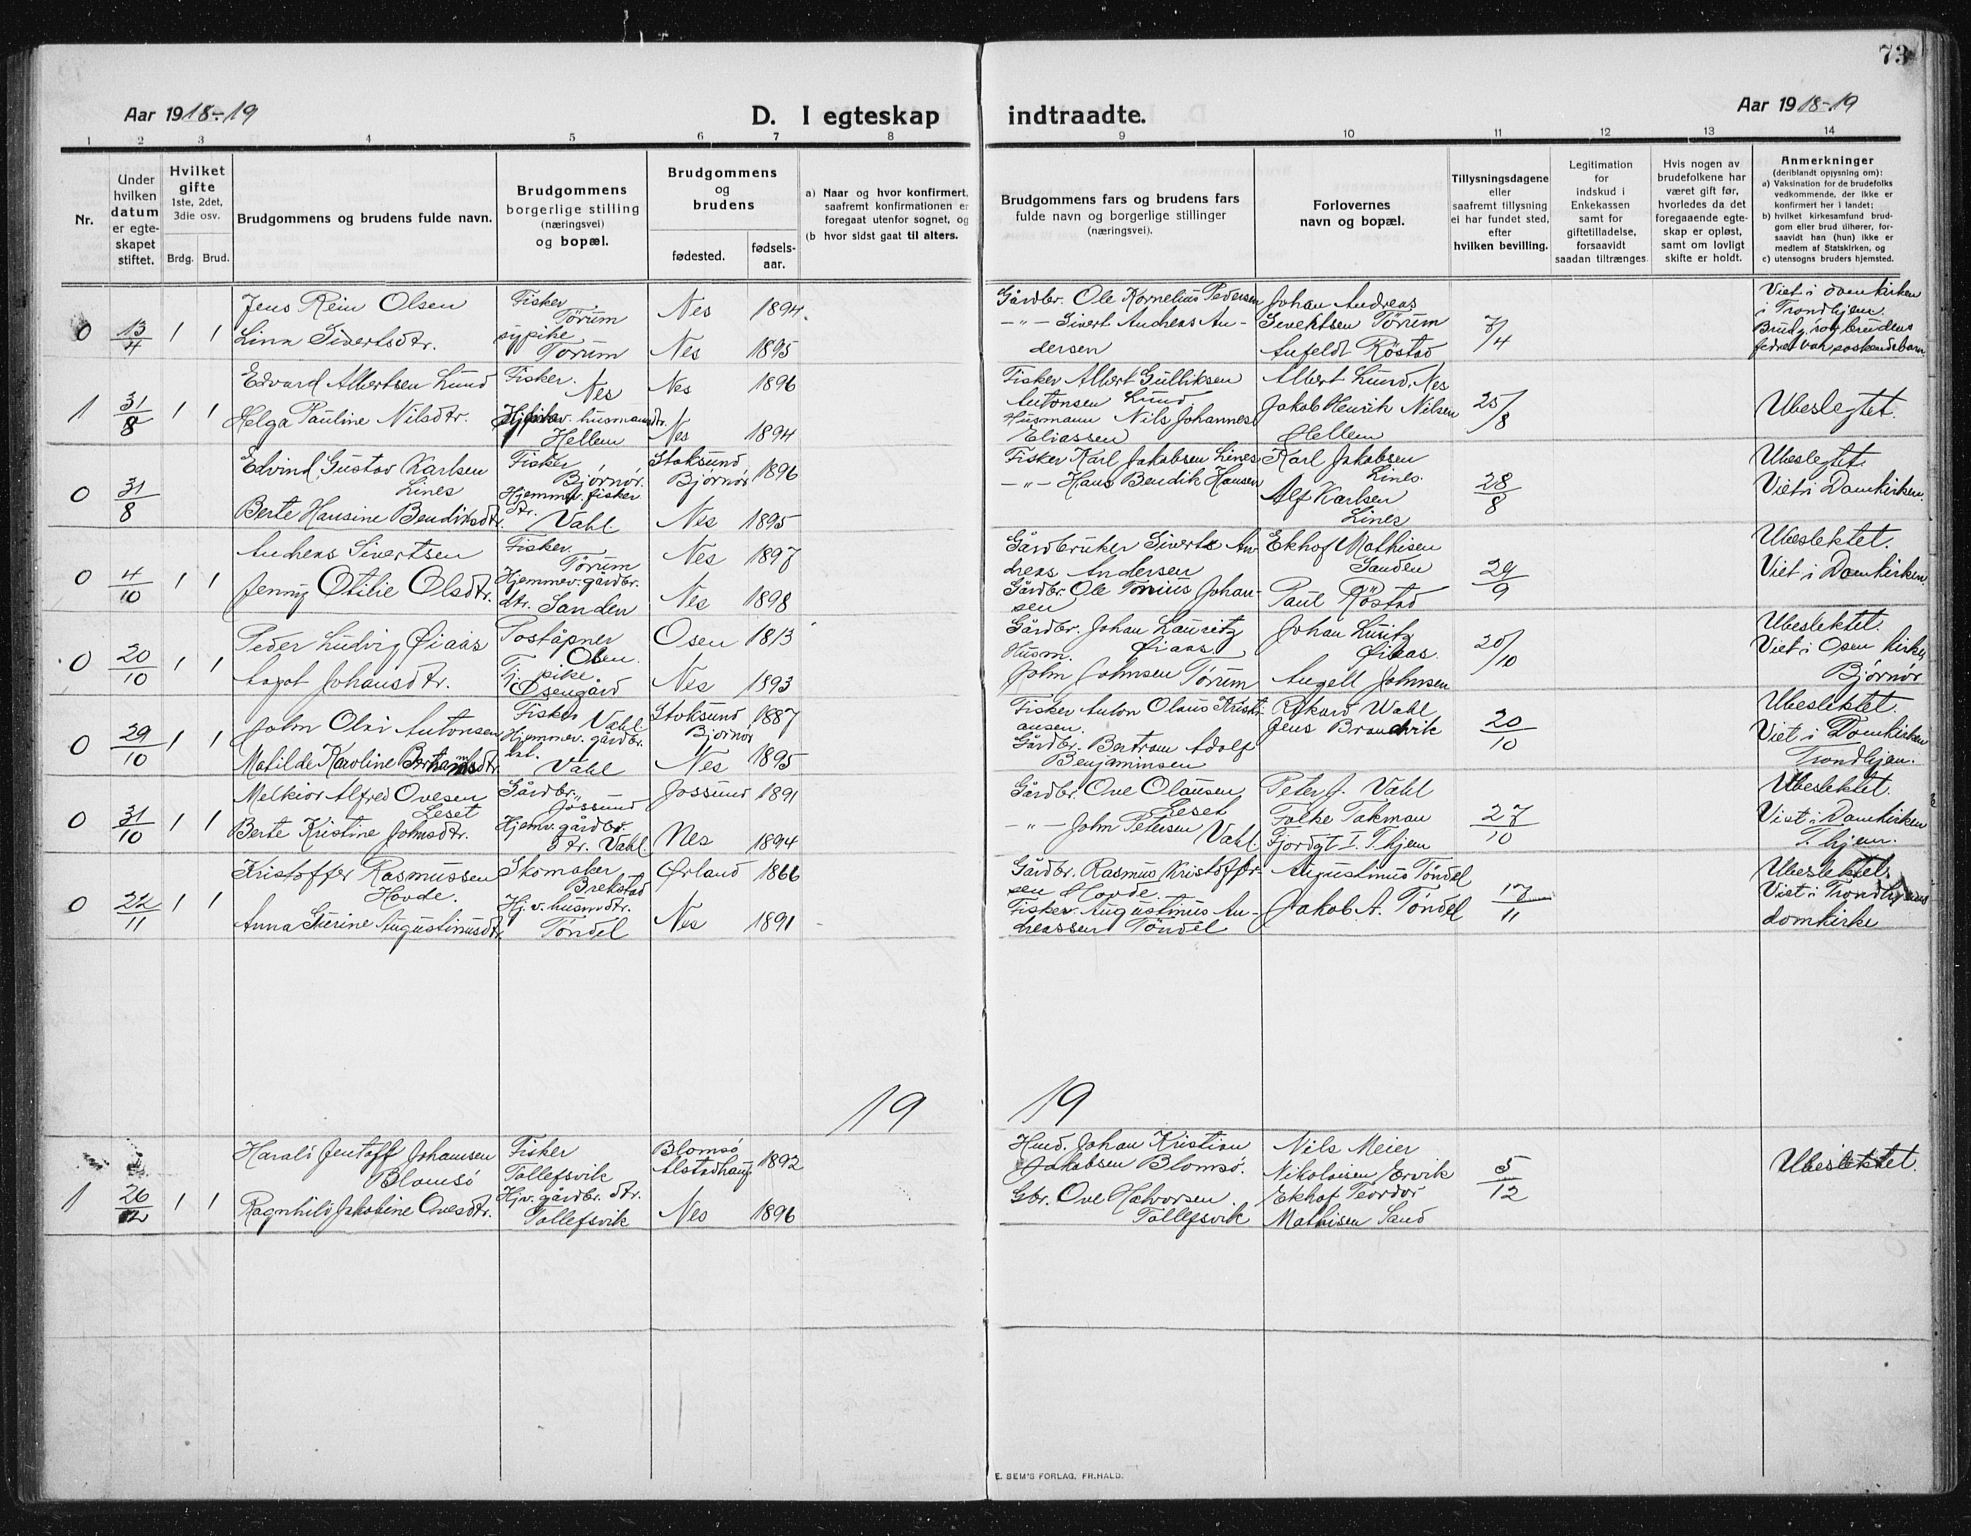 73
Aar 1918-19
D. I egteskap
indtraadte.
Aar 1918-19
1 2 3 4 5 6 7 8 9 10 11 12 13 14
Nr.
Under
hvilken
datum
er egte-
skapet
stiftet.
Hvilket
gifte
1ste, 2det,
3die osv.
Brdg. Brud.
Brudgommens og brudens fulde navn.
Brudgommens
borgerlige stilling
(næringsvei)
og bopæl.
Brudgommens
og
brudens
fødested.
fødsels-
aar.
a) Naar og hvor konfirmert,
saafremt konfirmationen er
foregaat utenfor sognet, og
(b hvor sidst gaat til alters.
Brudgommens fars og brudens fars
fulde navn og borgerlige stillinger
(næringsvei).
Forlovernes
navn og bopæl.
Tillysningsdagene
eller
saafremt tillysning
ei har fundet sted,
efter
hvilken bevilling.
Legitimation
for
indskud i
Enkekassen
samt for
giftetilladelse,
forsaavidt
saadan tiltrænges.
Hvis nogen av
brudefolkene har
været gift før,
hvorledes da det
foregaaende egte-
skap er opløst,
samt om lovligt
skifte er holdt.
Anmerkninger
(deriblandt opysning om):
a) Vaksination for de brudefolks
vedkommende, der ikke er
konfirmert her i landet;
b) hvilket kirkesamfund brud-
gom eller brud tilhører, for-
saavidt han (hun) ikke er
medlem af Statskirken, og
c) utensogns bruders hjemsted.
0 13/4 1 1
Jens Rein Olsen
Lina Sivertsdtr.
Fisker
Tørum
sypike
Tørum
Nes 1894.
Nes 1895
Gårdbr. Ole Kornelius Pedersen
—"— Sivert Andreas An-
dersen
Johan Andreas
Sivertsen Tørum
Anfeldt Röstad
7/4
Viet i Domkirken
i Trondhjem.
Brudg. og brudens
fedre var søskendebarn
1 31/8 1 1
Edvard Albertsen Lund
Helga Pauline Nilsdtr.
Fisker.
Nes
husmandsdtr.
Hellem
Nes 1896
Nes 1894
Fisker Albert Gulliksen
Antonsen Lund.
Husmann Nils Johannes
Eliassen
Albert Lund, Nes
Jakob Henrik Nilsen
Hellem
25/8
Ubeslegtet.
0 31/8
Edvind Gustav Karlsen
Lines
Berte Hansine Bendiksdtr.
Fisker
Bjørnør.
Hjemmev. fisker
dtr.
Vahl
Stoksund
Bjørnør 1896
Nes 1895
Fisker Karl Jakobsen Lines
—"— Hans Bendik Hansen
Karl Jakobsen
Lines.
Alf Karlsen
Lines
28/8
Ubeslegtet
Viet i Domkirken.
0 4/10 1 1
Andreas Sivertsen
Jenny Otilie Olsdtr.
Fisker.
Tørum
Hjemmev. gårdbr.
dtr. Sanden
Nes 1897
Nes 1898
Gårdbruker Sivert An
dreas Andersen
Gårdbr. Ole Tonius Johan-
sen
Ekhof Mathisen
Sanden
Paul Röstad
29/9
Ubeslektet.
Viet i Domkirken
0 20/10 1 1
Peder Ludvig Øiaas
Aagot Johansdtr.
Poståpner
Osen.
Tj. pike
Osengård
Osen 1813
Nes 1893
Gårdbr. Johan Lauritz
Øiaas
Husm.
John Johnsen Tørum
Johan Luritz
Øiaas.
Angell Johnsen
20/10
Ubeslektet.
Viet i Osen kirke
Bjørnør
0 29/10 1 1
John Olai Antonsen
Matilde Karoline Bertramsdtr.
Fisker Vahl
Hjemmev. gårdbr.
dat.
Vahl
Stoksund
Bjørnør 1887
Nes 1895
Fisker Anton Olaus Kristi-
ansen.
Gårdbr. Bertram Adolf
Benjaminsen
Rikard Wahl
Jens Brandvik
20/10
Ubeslektet.
Viet i Domkirken
Trondhjem.
0 31/10 1 1
Melkior Alfred Ovesen
Leset
Berte Kristine Johnsdtr.
Gårdbr.
Jøssund
Hjemv. gårdbr.
dtr. Vahl.
Jøssund 1891
Nes 1894
Gårdbr. Ove Olausen
Leset
—"— John Petersen Vahl.
Peter J. Vahl
Folke Takman
Fjordgt I. T.hjem
27/10
Ubeslektet.
Viet i Domkirken
T.hjem.
0 22/11 1 1
Kristoffer Rasmussen
Hovde.
Anna Sverine Augustinusdtr.
Skomaker
Brekstad
Hj. v. husmdtr.
Tøndel
Ørland 1866
Nes 1891
Gårdbr. Rasmus Kristoffer-
sen Hovde.
Fisker Augustinus An-
dreassen Tøndel
Augustinus Tøndel
Jakob A. Tøndel
17/11
Ubeslektet
Viet i Trondhjems
domkirke
19 19
1 26/12 1 1
Harald Jentoff Johansen
Blomsö
Ragnhild Jakobine Ovesdtr.
Fisker
Tollefsvik
Hjv. gårdbr. dtr.
Tollefsvik
Blomsö
Alstadhaug 1892
Nes 1896
Husd. Johan Kristian
Jakobsen Blomsö.
Gbr. Ove Halvorsen.
Tollefsvik
Nils Meier
Nikolaisen Ervik
Ekhof Teordor
Mathisen Sand
5/12
Ubeslektet.
E. SEM'S FORLAG, FR.HALD.